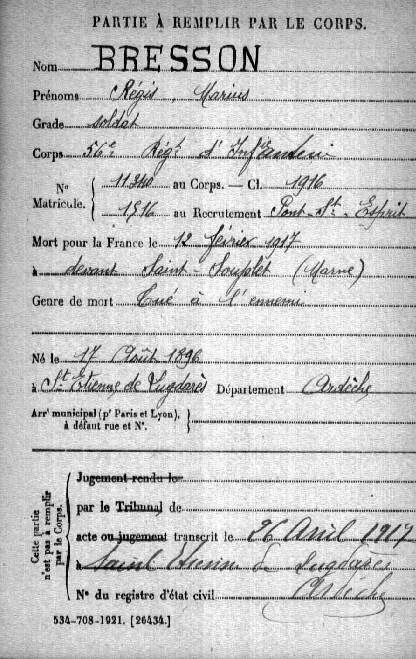 PARTIE À REMPLIR PAR LE CORPS.
Nom BRESSON
Prénoms Régis, Marius
Grade soldat
Corps 56e Régt d'Infanterie
No Matricule. 11340 au Corps. — Cl. 1916
1516 au Recrutement Pont-St-Esprit
Mort pour la France le 12 février 1917
à devant Saint-Souplet (Marne)
Genre de mort Tué à l'ennemi
Né le 17 Août 1896
à St Etienne de Lugdarès Département Ardèche
Arrt municipal (pr Paris et Lyon),
à défaut rue et No.
Cette partie
n'est pas à remplir
par le Corps.
Jugement rendu le
par le Tribunal de
acte ou jugement transcrit le 26 Avril 1917
à Saint Etienne de Lugdarès
Ardèche
No du registre d'état civil
534-708-1921. [26434.]